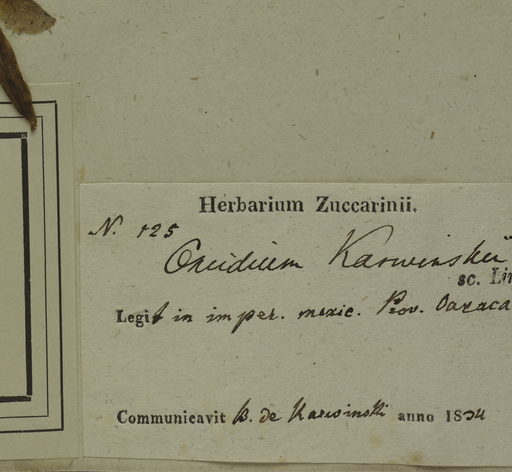 Herbarium Zuccarinii.
N. 125
Oncidium Karwinskii
sc. Lin
Legit in imper. mexic. Prov. Oaxaca
Communicavit B. de Karwinski anno 1834